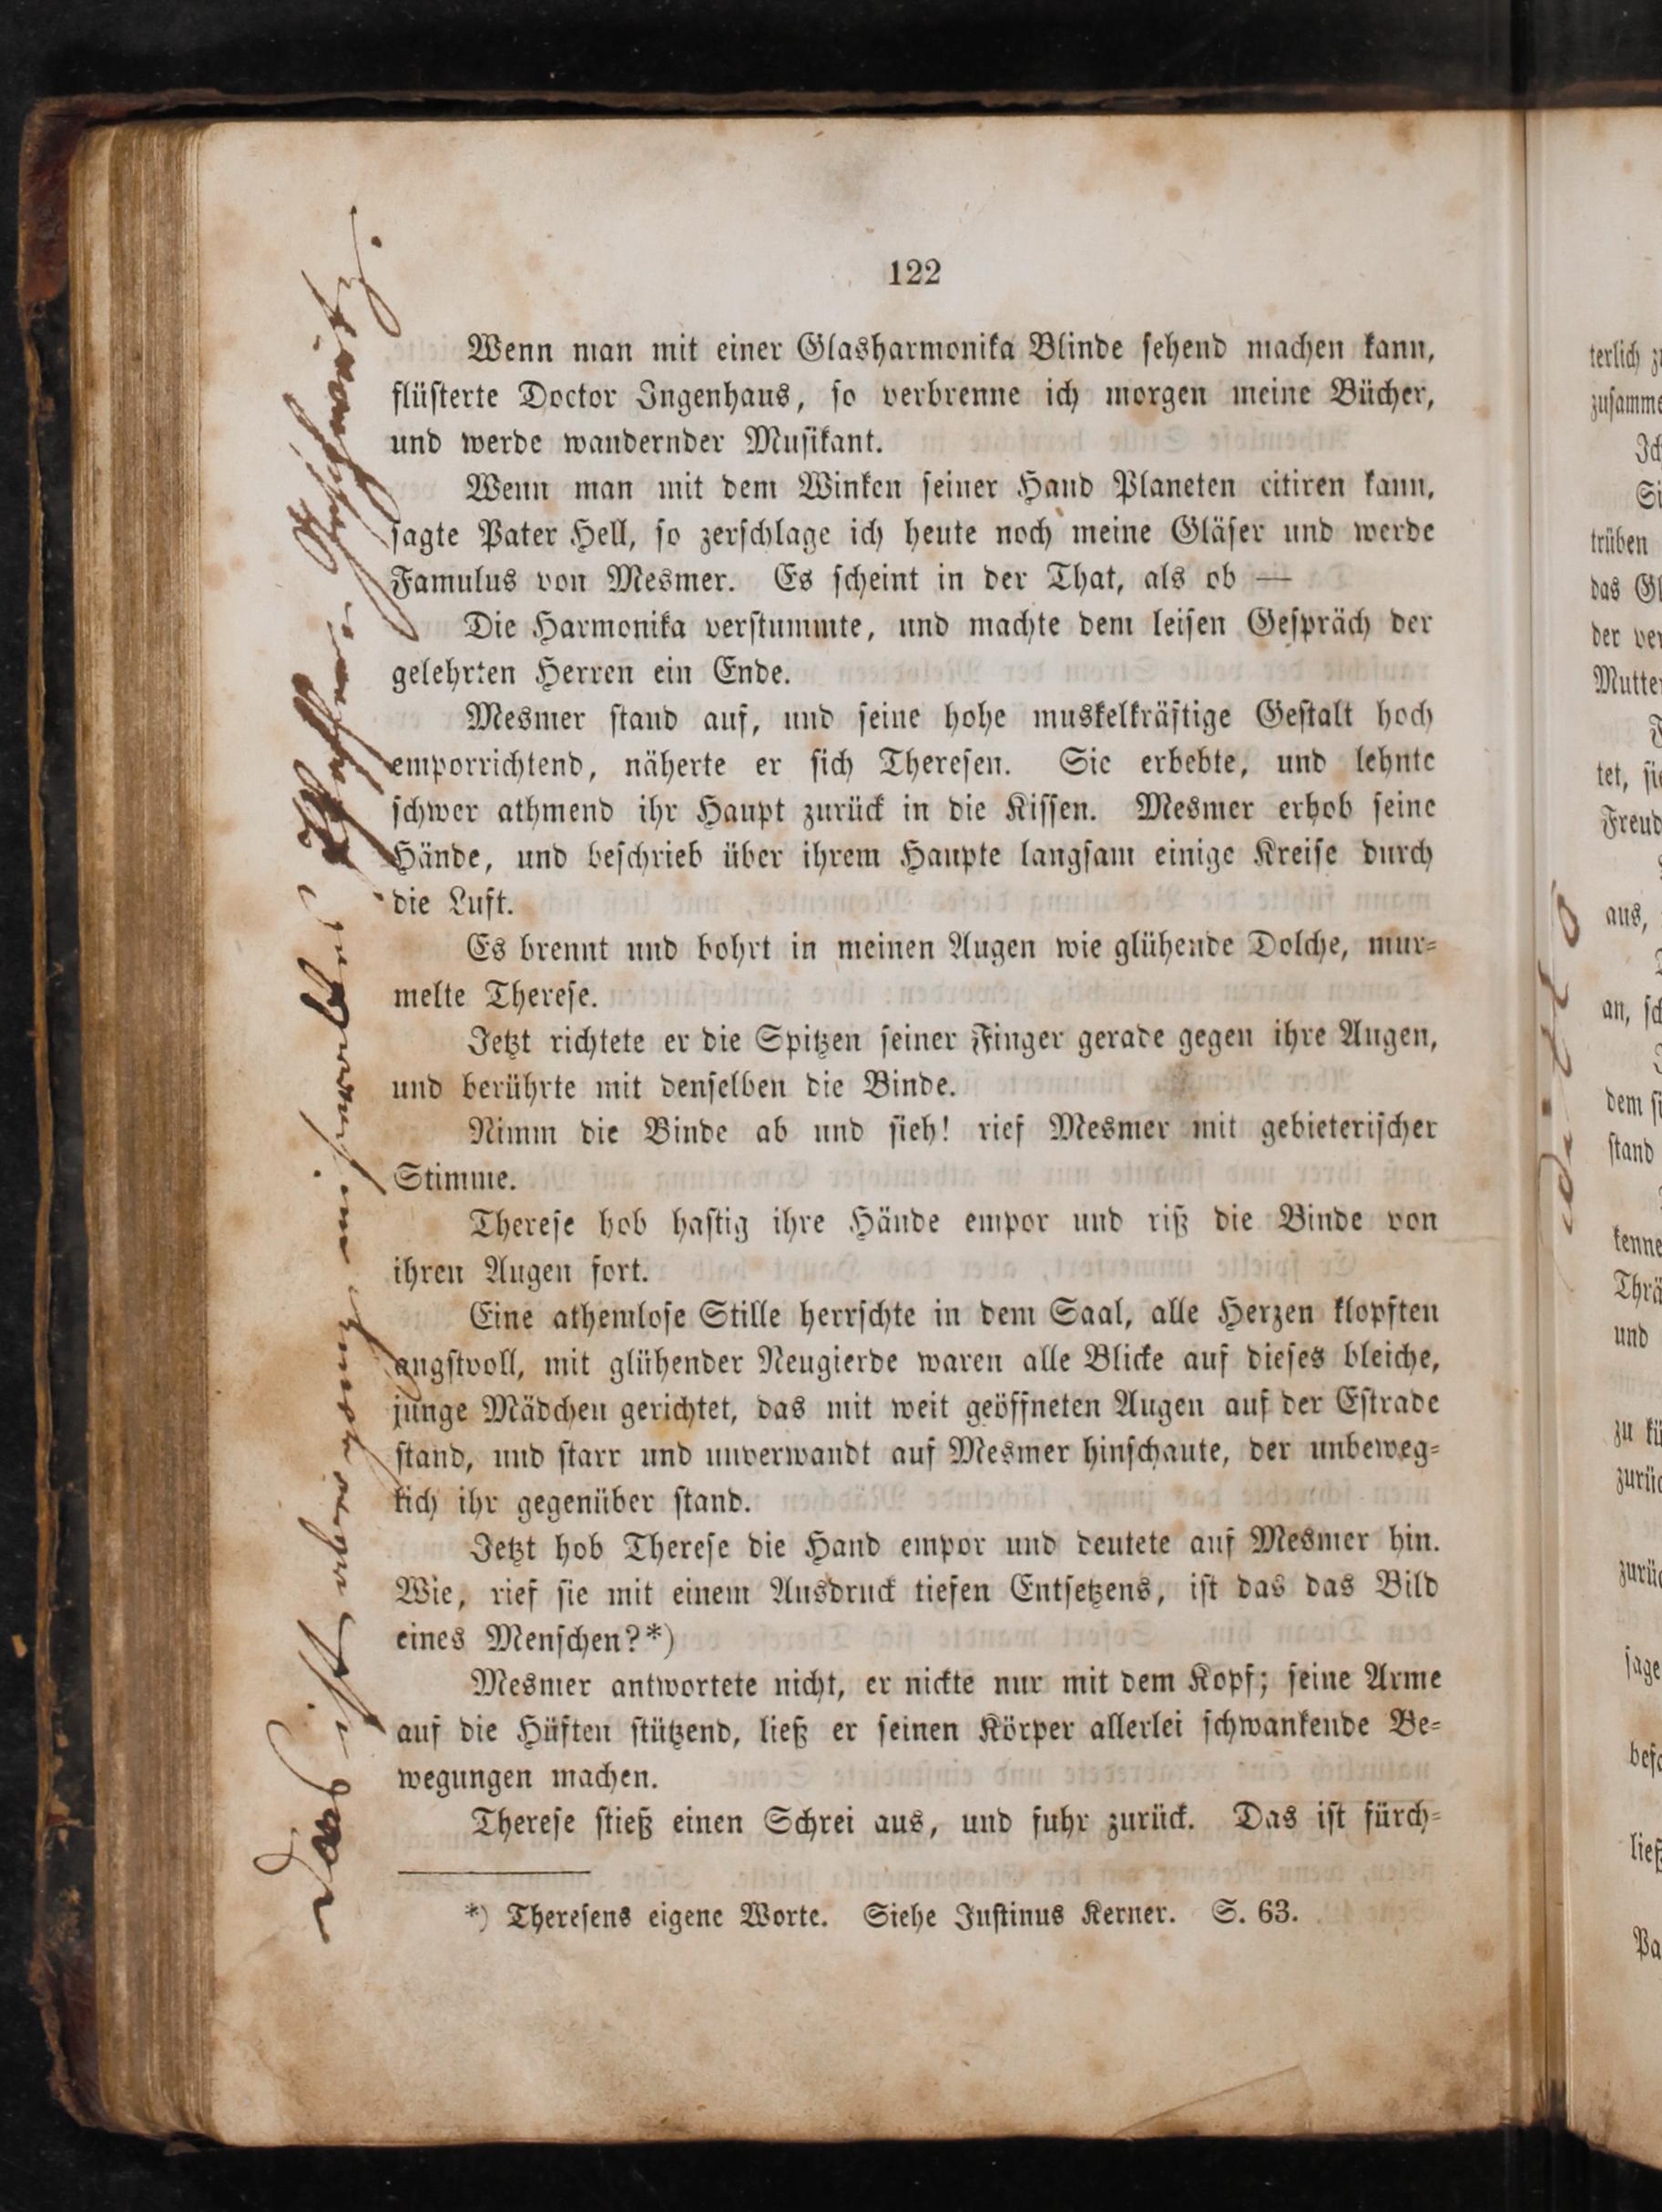 122
Wenn man mit einer Glasharmonika Blinde sehend machen kann,
flüsterte Doctor Ingenhaus, so verbrenne ich morgen meine Bücher,
und werde wandernder Musikant.
Wenn man mit dem Winken seiner Hand Planeten citiren kann,
sagte Pater Hell, so zerschlage ich heute noch meine Gläser und werde
Famulus von Mesmer. Es scheint in der That, als ob —
Die Harmonika verstummte, und machte dem leisen Gespräch der
gelehrten Herren ein Ende.
Mesmer stand auf, und seine hohe muskelkräftige Gestalt hoch
emporrichtend, näherte er sich Theresen. Sie erbebte, und lehnte
schwer athmend ihr Haupt zurück in die Kissen. Mesmer erhob seine
Hände, und beschrieb über ihrem Haupte langsam einige Kreise durch
die Luft.
Es brennt und bohrt in meinen Augen wie glühende Dolche, mur-
melte Therese.
Jetzt richtete er die Spitzen seiner Finger gerade gegen ihre Augen,
und berührte mit denselben die Binde.
Nimm die Binde ab und sieh! rief Mesmer mit gebieterischer
Stimme.
Therese hob hastig ihre Hände empor und riß die Binde von
ihren Augen fort.
Eine athemlose Stille herrschte in dem Saal, alle Herzen klopften
angstvoll, mit glühender Neugierde waren alle Blicke auf dieses bleiche,
junge Mädchen gerichtet, das mit weit geöffneten Augen auf der Estrade
stand, und starr und unverwandt auf Mesmer hinschaute, der unbeweg-
lich ihr gegenüber stand.
Jetzt hob Therese die Hand empor und deutete auf Mesmer hin.
Wie, rief sie mit einem Ausdruck tiefen Entsetzens, ist das das Bild
eines Menschen?*)
Mesmer antwortete nicht, er nickte nur mit dem Kopf; seine Arme
auf die Hüften stützend, ließ er seinen Körper allerlei schwankende Be-
wegungen machen.
Therese stieß einen Schrei aus, und fuhr zurück. Das ist fürch-
*) Theresens eigene Worte. Siehe Justinus Kerner. S. 63.
Das ist aber ganz miserables
terlich
Ich
trüben
das
der
tet,
aus,
an,
dem
stand
und
zu